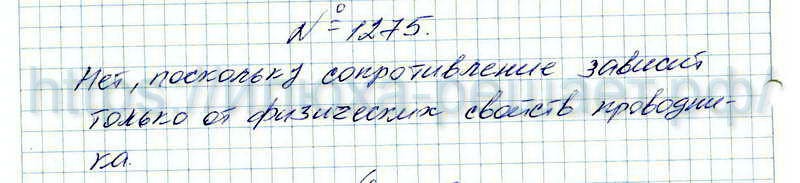 № 1275.
Нет, поскольку сопротивление зависит
только от физических свойств проводни-
ка.